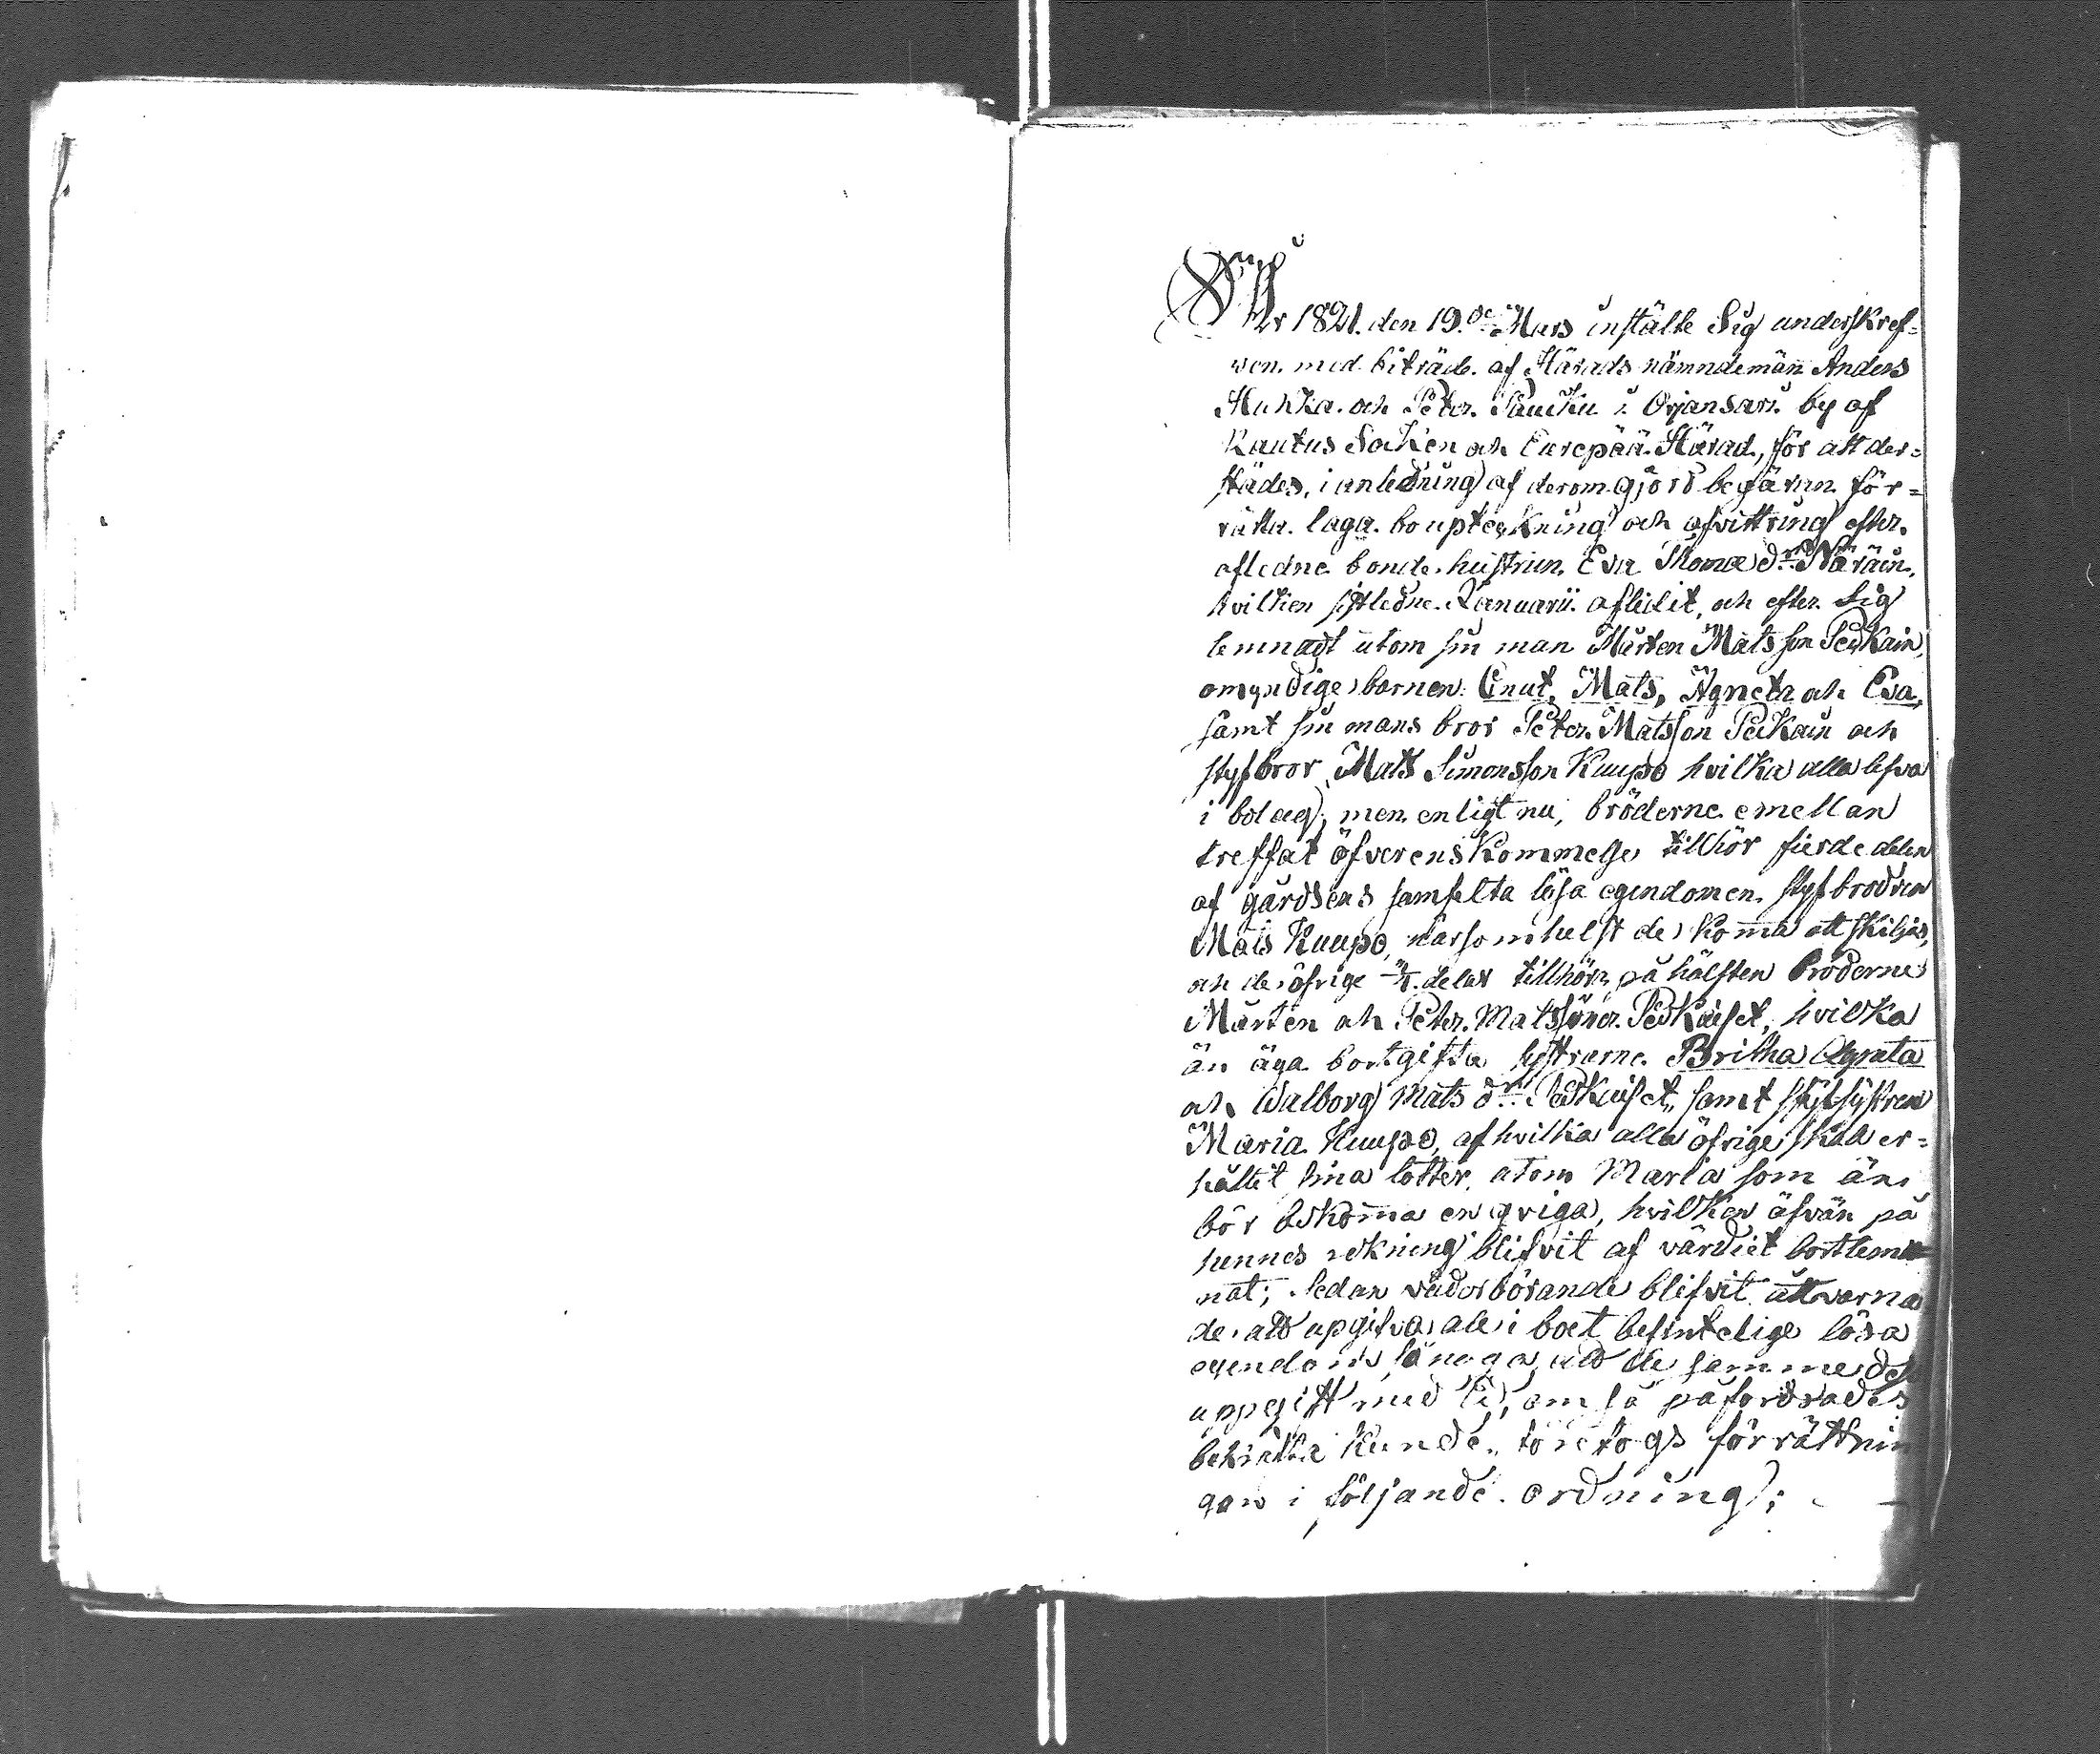 År 1821. den 19.de Mars instälte Sig underskref=
ven. med biträde. af Härads nämndemän Anders
Hukka. och Peter. Paucku i Orjansari. by af
Rautus Socken och Eurepää. Härad, för att der=
städes, i anledning af derom gjord begäran för=
rätta. laga. boupteckning och afvittring efter.
afledne bonde hustrun. Eva Thomæ dr Näräin.
hvilken sistledne. Januarii. aflidit, och efter Sig
lemnadt utom sin man Mårten Matsson Peckain,
omyndige barnen: Cnut, Mats, Agneta och Eva,
samt sin mans bror Peter. Matsson Peckain och
styfbror Mats Simonsson Kuupo hvilka alla lefva
i bolag; men enligt nu, bröderne emellan
treffat öfverenskommelse tillhör fierdedelen
af gårdsens samfelta lösa egendomen. styfbrodren
Mats Kuupo, närsomhelst de komma att skiljas,
och de öfrige 3/4. delar tillhöra, på hälften Bröderne
Mårten och Peter. Matssöner. Peckaiset, hvilka
än äga bortgifta systrarne. Britha Agneta
och Walborg Mats dr Peckaiset, samt styfsystren
Maria Kuupo, af hvilka alla öfrige skall er=
hållit sina lotter, utom Maria som än
bör bekomma en qviga, hvilken äfvän på
hennes räkning blifvit af värdiet bortlem
nat; Sedan vederbörande blifvit åtvarna
de att upgifva all i boet befintelige lösa
egendom, så noga att de samma des
uppgift med Ed, om så påfordrades
bekräfta kunde, företogs förrättnin
gen i följande ordning;